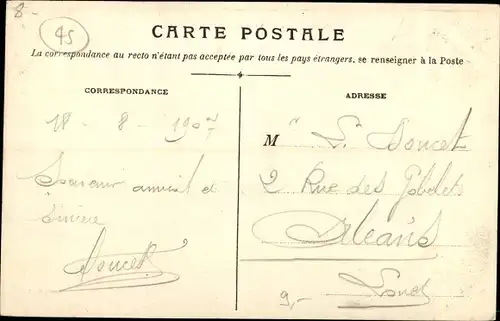 8-
45
CARTE POSTALE
La correspondance au recto n'étant pas acceptée par tous les pays étrangers, se renseigner à la Poste
CORRESPONDANCE
18 - 8 - 1907
Souvenir amical et
sincère
Doucet
ADRESSE
M L. Doucet
2 Rue des Gobelets
Orléans
Loiret
9,-